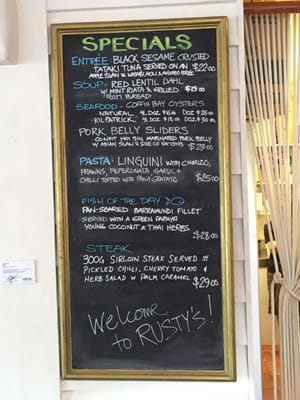 SPECIALS
ENTRÉE: BLACK SESAME CRUSTED
TATAKI TUNA SERVED ON AN
APPLE SLAW W WASABI AIOLI $22.00
SOUP - RED LENTIL DAHL
W/ MINT RIATA & GRILLED $15.00
ROTI BREAD
SEAFOOD - COFFIN BAY OYSTERS
NATURAL ½ DOZ $16 DOZ $26.00
KILPATRICK ½ DOZ $18.00 DOZ $30.00
PORK BELLY SLIDERS
COCONUT HOI SIN MARINATED PORK BELLY
W/ ASIAN SLAW & SIDE OF $23.00
PASTA: LINGUINI WITH CHORIZO,
PRAWNS, PEPERONATA, GARLIC &
CHILLI TOPPED WITH PANA GRATATO $25.00
FISH OF THE DAY
PAN-SEARED BARRAMUNDI FILLET
SERVED WITH A GREEN PAPAYA
YOUNG COCONUT & THAI HERBS
$28.00
STEAK
300G SIRLOIN STEAK SERVED W
PICKLED CHILLI, CHERRY TOMATO &
HERB SALAD W PALM CARAMEL
$29.00
Welcome
to RUSTY'S!